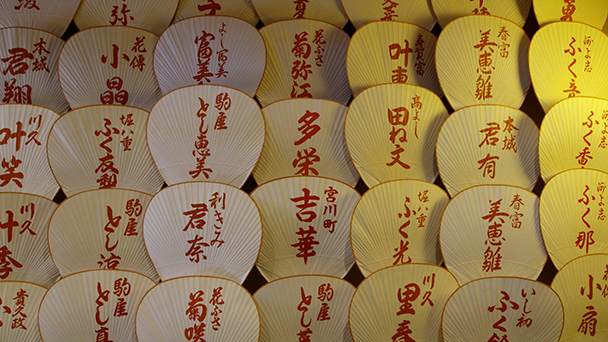 本城
君翔
花傳
小晶
よし富美
富美
花ふさ
菊弥江
叶恵
春富
美恵雛
河よ志
ふく音
川久
叶笑
堀八重
ふく友
駒屋
とし恵美
多栄
高よし
田ね文
本城
君有
河よ志
ふく香
川久
叶季
駒屋
とし
利きみ
君奈
宮川町
吉華
堀八重
ふく光
春富
美恵雛
河よ志
ふく那
貴久政
駒屋
とし真
花ふさ
菊咲
駒屋
とし
川久
里春
いし初
ふく
小扇